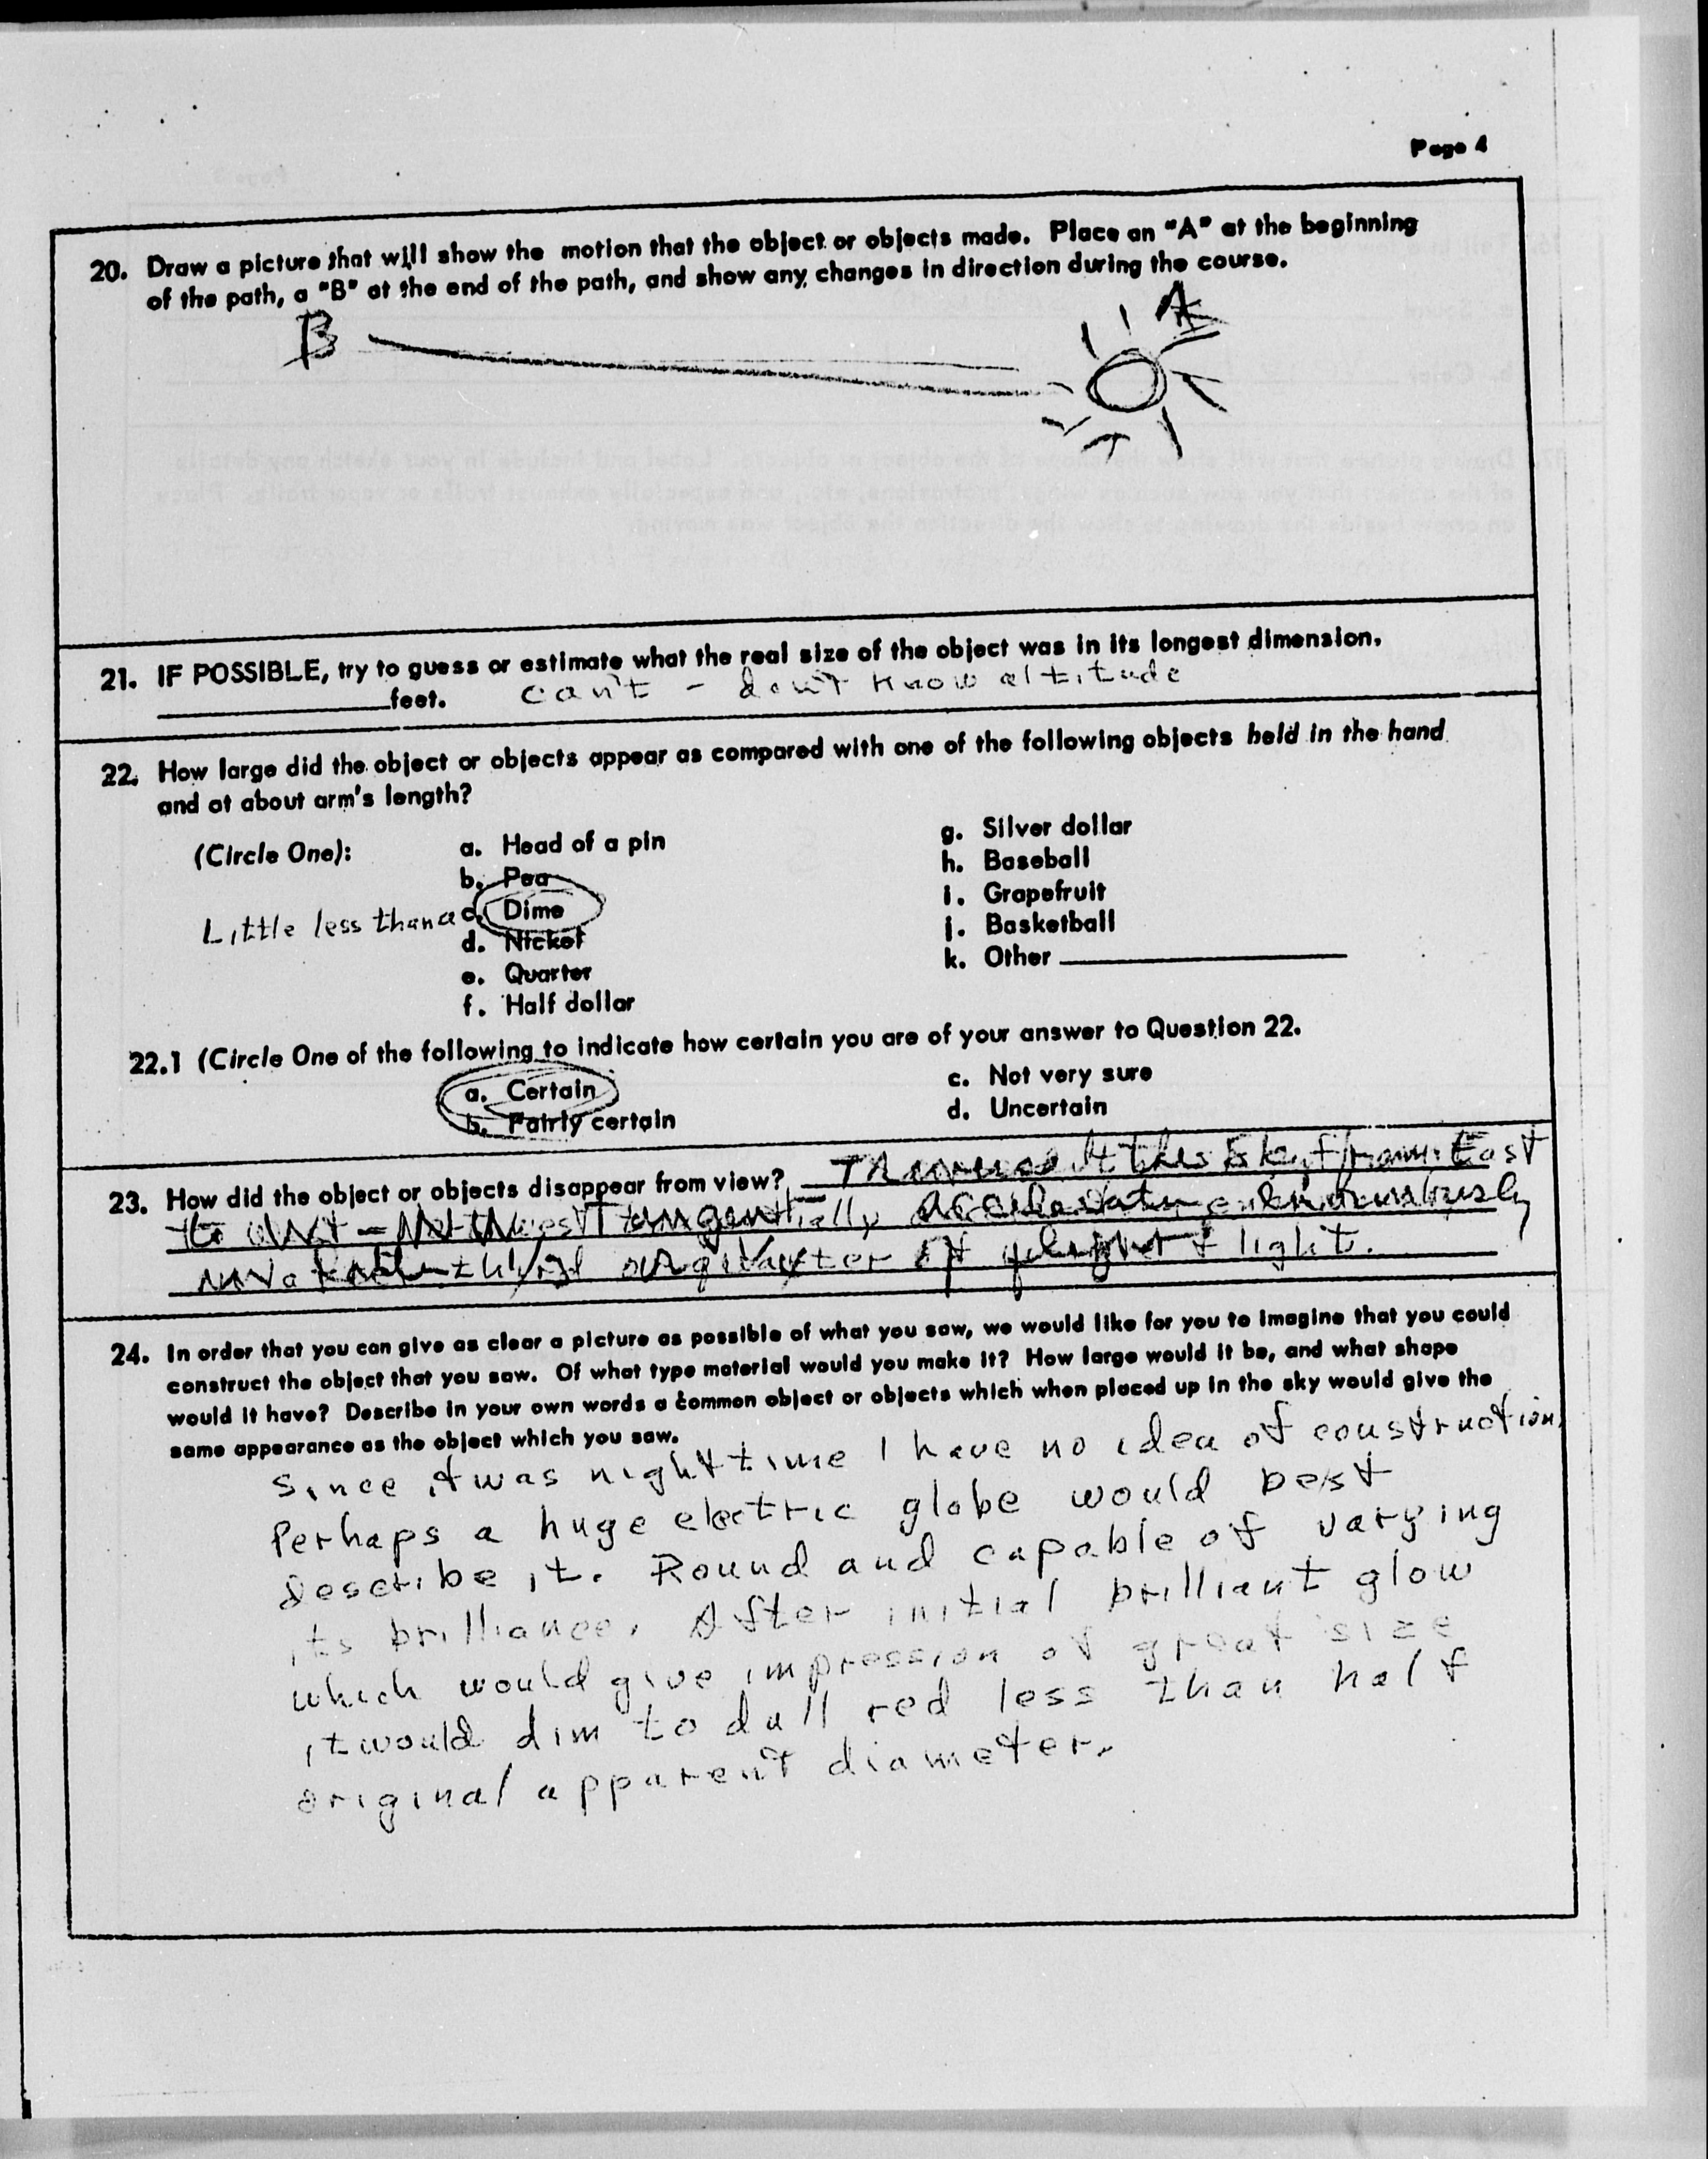 Page 4
20. Draw a picture that will show the motion that the object or objects made. Place an "A" at the beginning
of the path, a "B" at the end of the path, and show any changes in direction during the course.
B A
21. IF POSSIBLE, try to guess or estimate what the real size of the object was in its longest dimension.
feet. can't - don't know altitude
22. How large did the object or objects appear as compared with one of the following objects held in the hand
and at about arm's length?
(Circle One): a. Head of a pin g. Silver dollar
b. Pea h. Baseball
Little less than a c. Dime i. Grapefruit
d. Nickel j. Basketball
e. Quarter k. Other
f. Half dollar
22.1 (Circle One of the following to indicate how certain you are of your answer to Question 22.
a. Certain c. Not very sure
b. Fairly certain d. Uncertain
23. How did the object or objects disappear from view? the sky from East
to tangentially
third or quarter of light.
24. In order that you can give as clear a picture as possible of what you saw, we would like for you to imagine that you could
construct the object that you saw. Of what type material would you make it? How large would it be, and what shape
would it have? Describe in your own words a common object or objects which when placed up in the sky would give the
same appearance as the object which you saw.
Since it was night time I have no idea of construction.
Perhaps a huge electric globe would best
describe it. Round and capable of varying
its brilliance. After initial brilliant glow
which would give impression of great size
it would dim to dull red less than half
original apparent diameter.